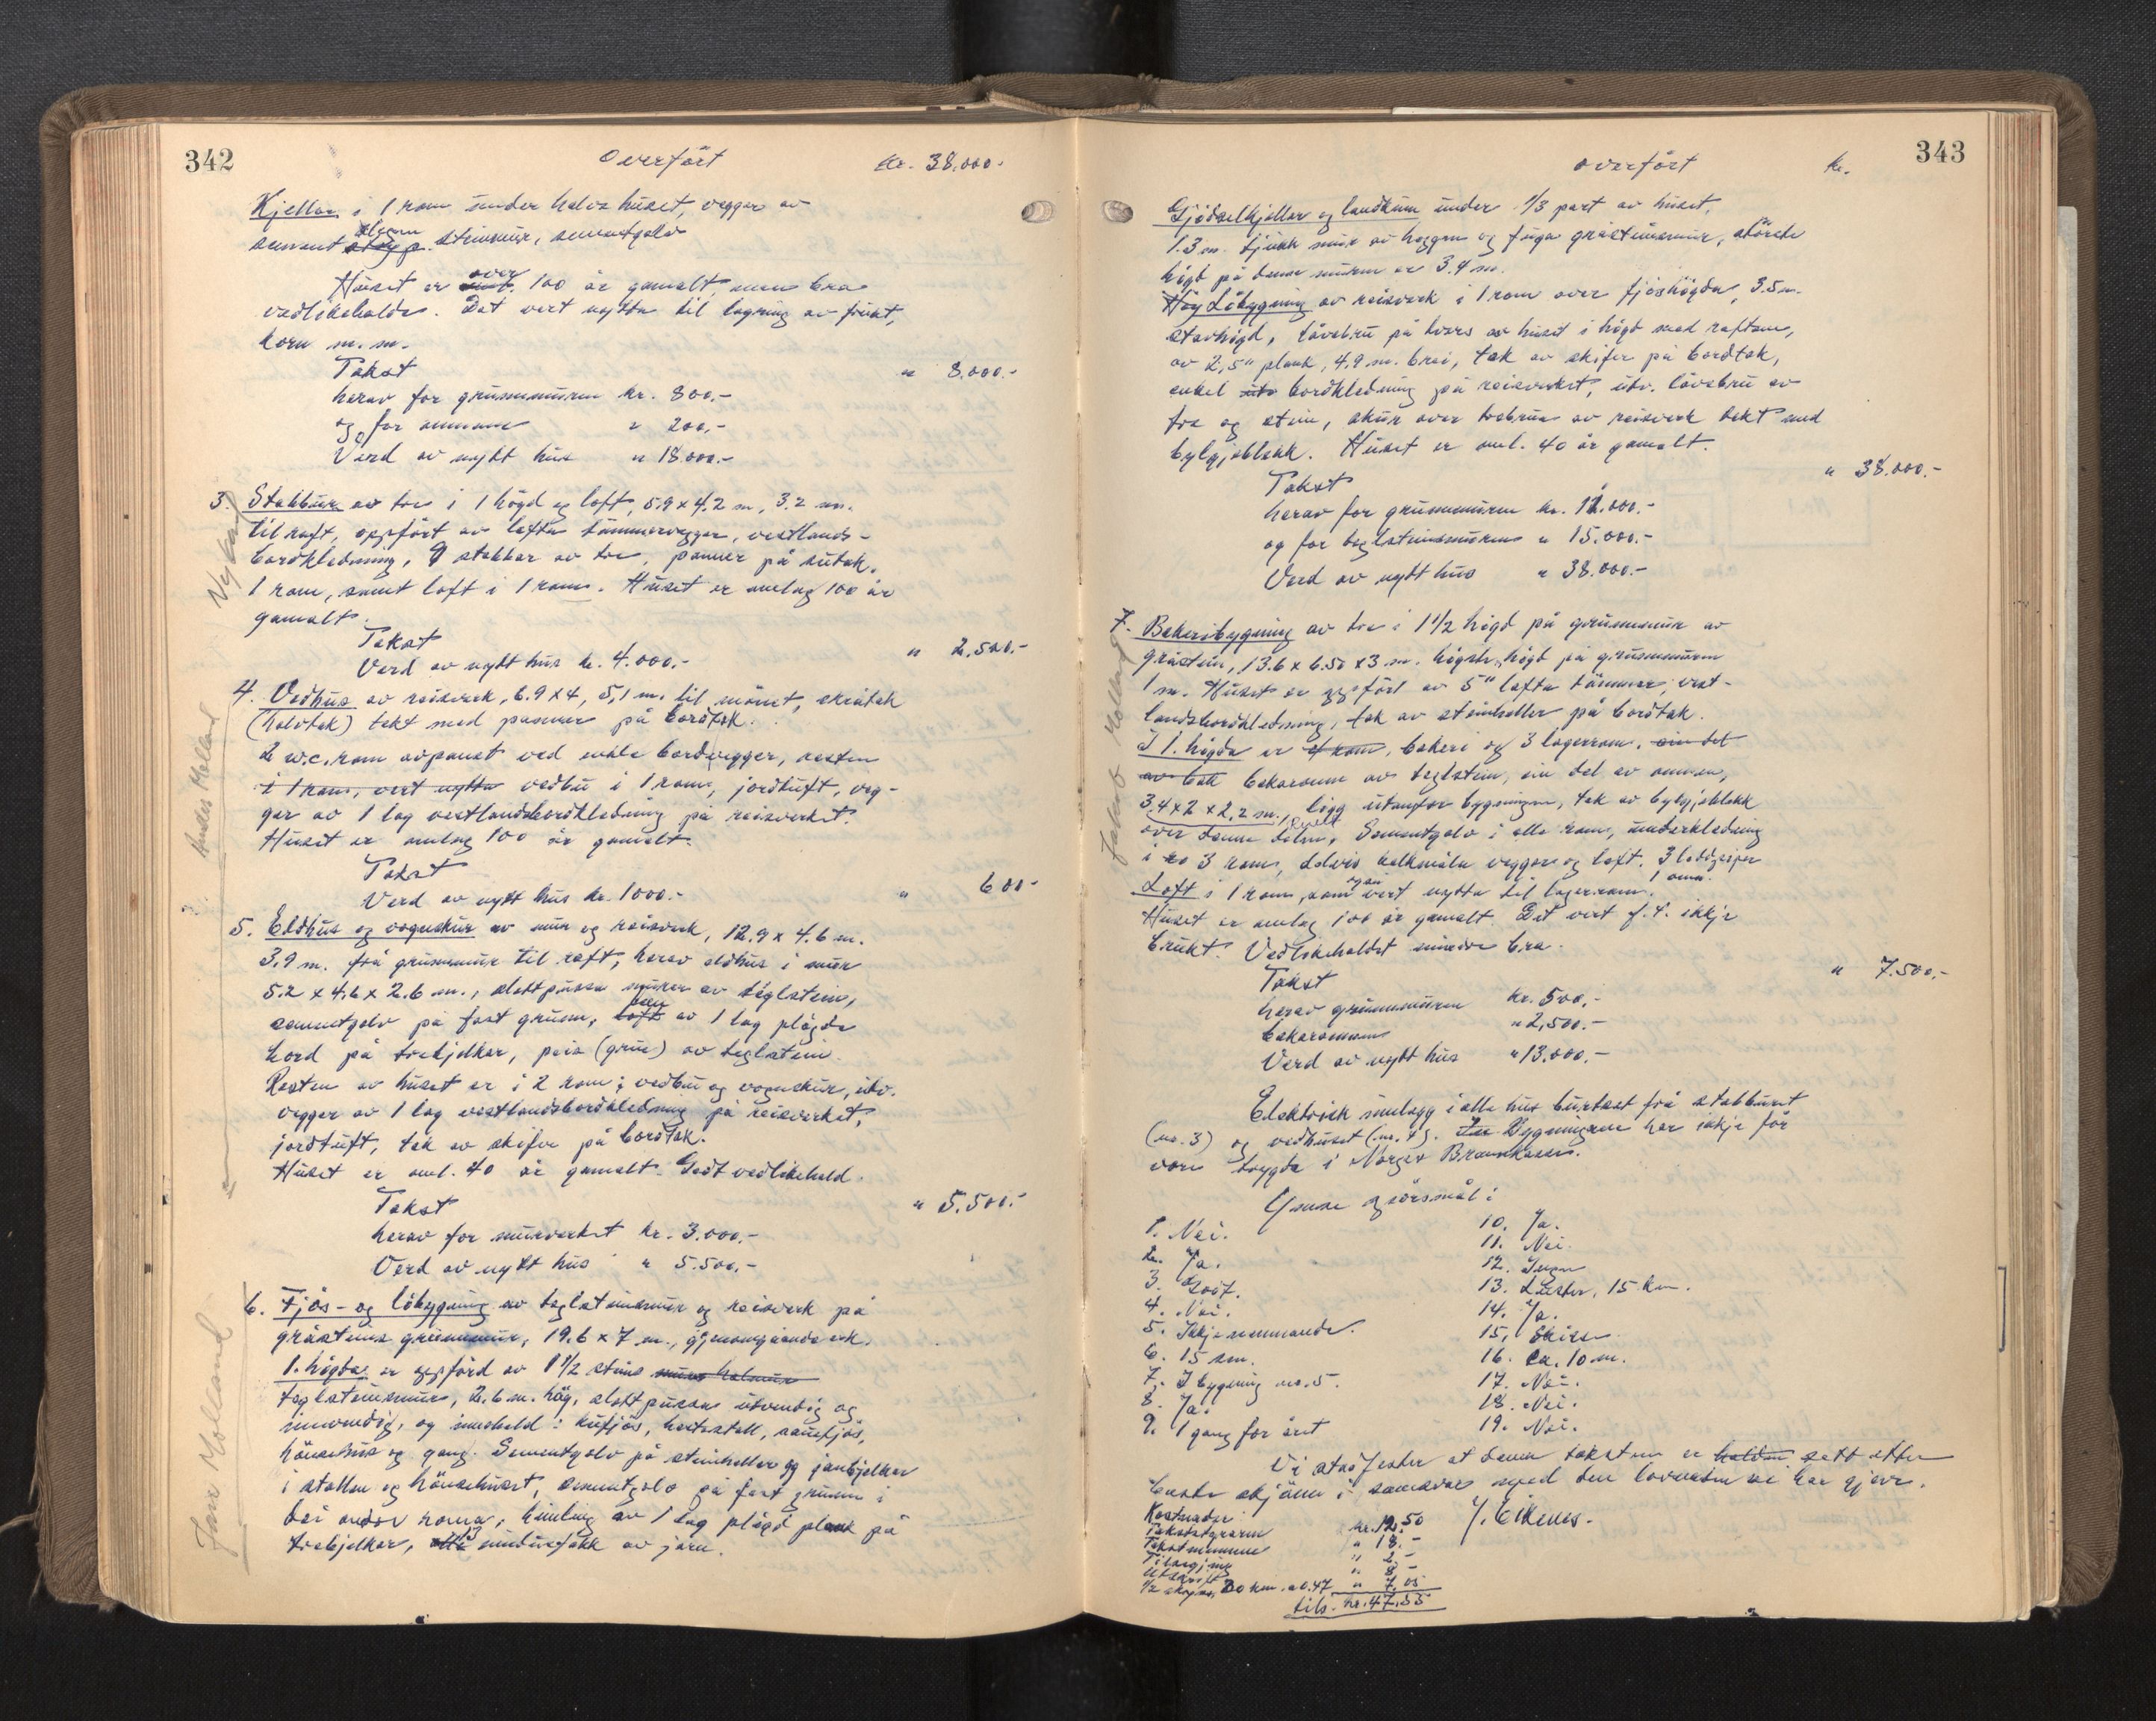 342
Overført
Kr. 38.000.-
Kjellar i 1 rom under halve huset, vegger av
sement slegen steinmur, sementgolv
Huset er over 100 år gamalt, men bra
vedlikehalde. Det vert nytta til lagring av frukt,
korn m.m.
Takst " 8.000.-
herav for grunnmuren kr. 800.-
og for omnane " 200.-
Verd av nytt hus " 18.000.-
3. Stabbur av tre i 1 högd og loft, 5.9 x 4.2 m, 3.2 m.
til raft, oppfört av lafta tömmervegger, vestlands-
bordkledning, 9 stabbar av tre, panner på sutak.
1 rom, samt loft i 1 rom. Huset er omlag 100 år
gamalt.
Takst " 2.500.-
Verd av nytt hus kr. 4.000.-
4. Vedhus av reisverk, 6.9 x 4, 5,1 m. til mönet, skråtak
(halvtak) tekt med panner på bordtak.
2 w.c. rom avpanet ved enkle bordvegger, resten
i 1 rom, vert nytta vedbu i 1 rom, jordtuft, veg-
ger av 1 lag vestlandsbordkledning på reisverket.
Huset er omlag 100 år gamalt.
Takst " 600.-
Verd av nytt hus kr. 1000.-
5. Eldhus og vognskur av mur og reisverk, 12.9 x 4.6 m.
3.9 m. frå grunnmur til raft, herav eldhus i mur
5.2 x 4.6 x 2.6 m., slettpussa murer av teglstein,
sementgolv på fast grunn, loft av 1 lag plögde
bord på trebjelker, peis (grue) av teglstein.
Resten av huset er i 2 rom; vedbu og vognskur, utv.
vegger av 1 lag vestlandsbordkledning på reisverket,
jordtuft, tak av skifer på bordtak.
Huset er oml. 40 år gamalt. Godt vedlikehald.
Takst " 5.500.-
herav for murverket kr. 3.000.-
Verd av nytt hus " 5.500.-
6. Fjös- og löbygning av teglsteinsmur og reisverk på
gråsteins grunnmur, 19.6 x 7 m., gjenomgåande ark.
1. högda er oppförd av 1 1/2 steins
teglsteinsmur, 2.6 m. hög, slettpussa utvendig og
innvendig, og inneheld: kufjös, hestestall, sauefjös,
hönsehus og gang. Sementgolv på steinheller og jarnbjelker
i stallen og hönsehuset, sementgolv på fast grunn i
dei andre romma, himling av 1 lag plögd plank på
trebjelker, vindusfakk av jarn.
Nybøen
Anders Molland
Jens Molland
343
Overført
kr.
Gjödselkjellar og landkum under 1/3 part av huset,
1.3 m. tjukk mur av hoggen og fuga gråsteinsmur, största
högd på denne muren er 3.4 m.
Höy Löbygning av reisverk i 1 rom over fjöshögda, 3.5 m.
stavhögd, lövebru på tvers av huset i högd med raftene,
av 2,5" plank, 4,9 m. brei, tak av skifer på bordtak,
enkel bordkledning på reisverket, utv. lövebru av
tre og stein, skur over trebrua av reisverk tekt med
bylgjeblekk. Huset er oml. 40 år gamalt.
Takst " 38.000.-
herav for grunnmuren kr. 11.000.-
og for teglsteinsmuren " 15.000.-
Verd av nytt hus " 38.000.-
7. Bakeribygning av tre i 1 1/2 högd på grunnmur av
gråstein, 13.6 x 6.50 x 3 m. högste högd på grunnmuren
1 m. Huset er oppfört av 5" lafta tömmer, vest-
landsbordkledning, tak av steinheller på bordtak.
I 1. högda er 4 rom, bakeri og 3 lagerrom, ein del
av bak bakaromn av teglstein, ein del av omnen,
3.4 x 2 x 2,2 m., ligg utanfor bygningen, tak av bylgjeblekk
over denne delen. Sementgolv i alle rom, underkledning
i 3 rom, delvis kalkmåla vegger og loft. 3 loddpiper
1 omn.
Loft i 1 rom som også vert nytta til lagerrom.
Huset er omlag 100 år gamalt. Det vert f.t. ikkje
brukt. Vedlikehaldet mindre bra.
Takst " 7.500.-
herav grunnmuren kr. 500.-
bakaromnen " 2,500.-
Verd av nytt hus " 13.000.-
Elektrisk innlegg i alle hus burtsett frå stabburet
(nr. 3) og vedhuset (nr. 4). Bygningane har ikkje för
vore trygda i Norges Brannkasse.
Ymse spörsmål:
1. Nei.
2. Ja.
3. Godt.
4. Nei.
5. Ikkje nemnande.
6. 15 sm.
7. I bygning nr. 5.
8. Ja.
9. 1 gang for året
10. Ja.
11. Nei.
12. Ingen
13. Luster, 15 km.
14. Ja.
15.
16. Ca. 10 m.
17. Nei.
18. Nei.
19. Nei.
Vi stadfester at denne taksten er halden sett etter
beste skjönn i samsvar med den lovnaden vi har gjeve.
Kostnader
Takstskjemaer kr. 12.50
Takstmennene " 18.-
Tilsegjing " 2.-
Utskrift " 8.-
1/2 skyss, 30 km. a 0.47 " 7,05
tils. kr. 47.55
J. Eikenes.
Jakob Molland